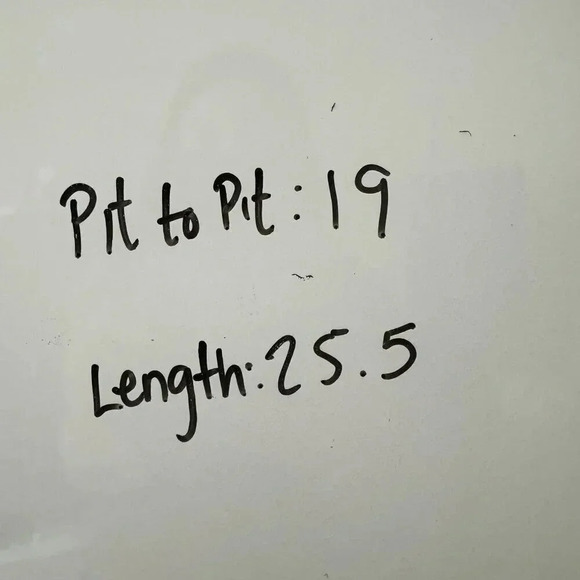 Pit to Pit: 19
Length: 25.5